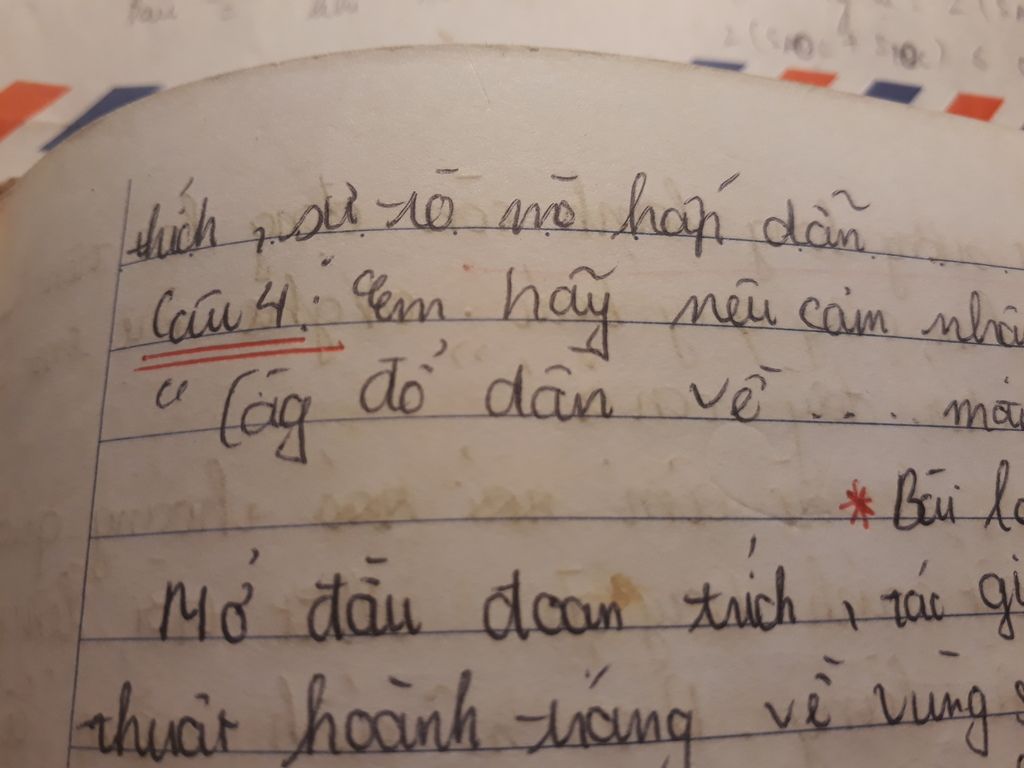 thích, sự tò mò hấp dẫn
Câu 4: Em hãy nêu cảm nhậ
" Càg đổ dần về ... mà
* Bài là
Mở đầu đoạn trích, tác gi
thuật hoành tráng về vùng s